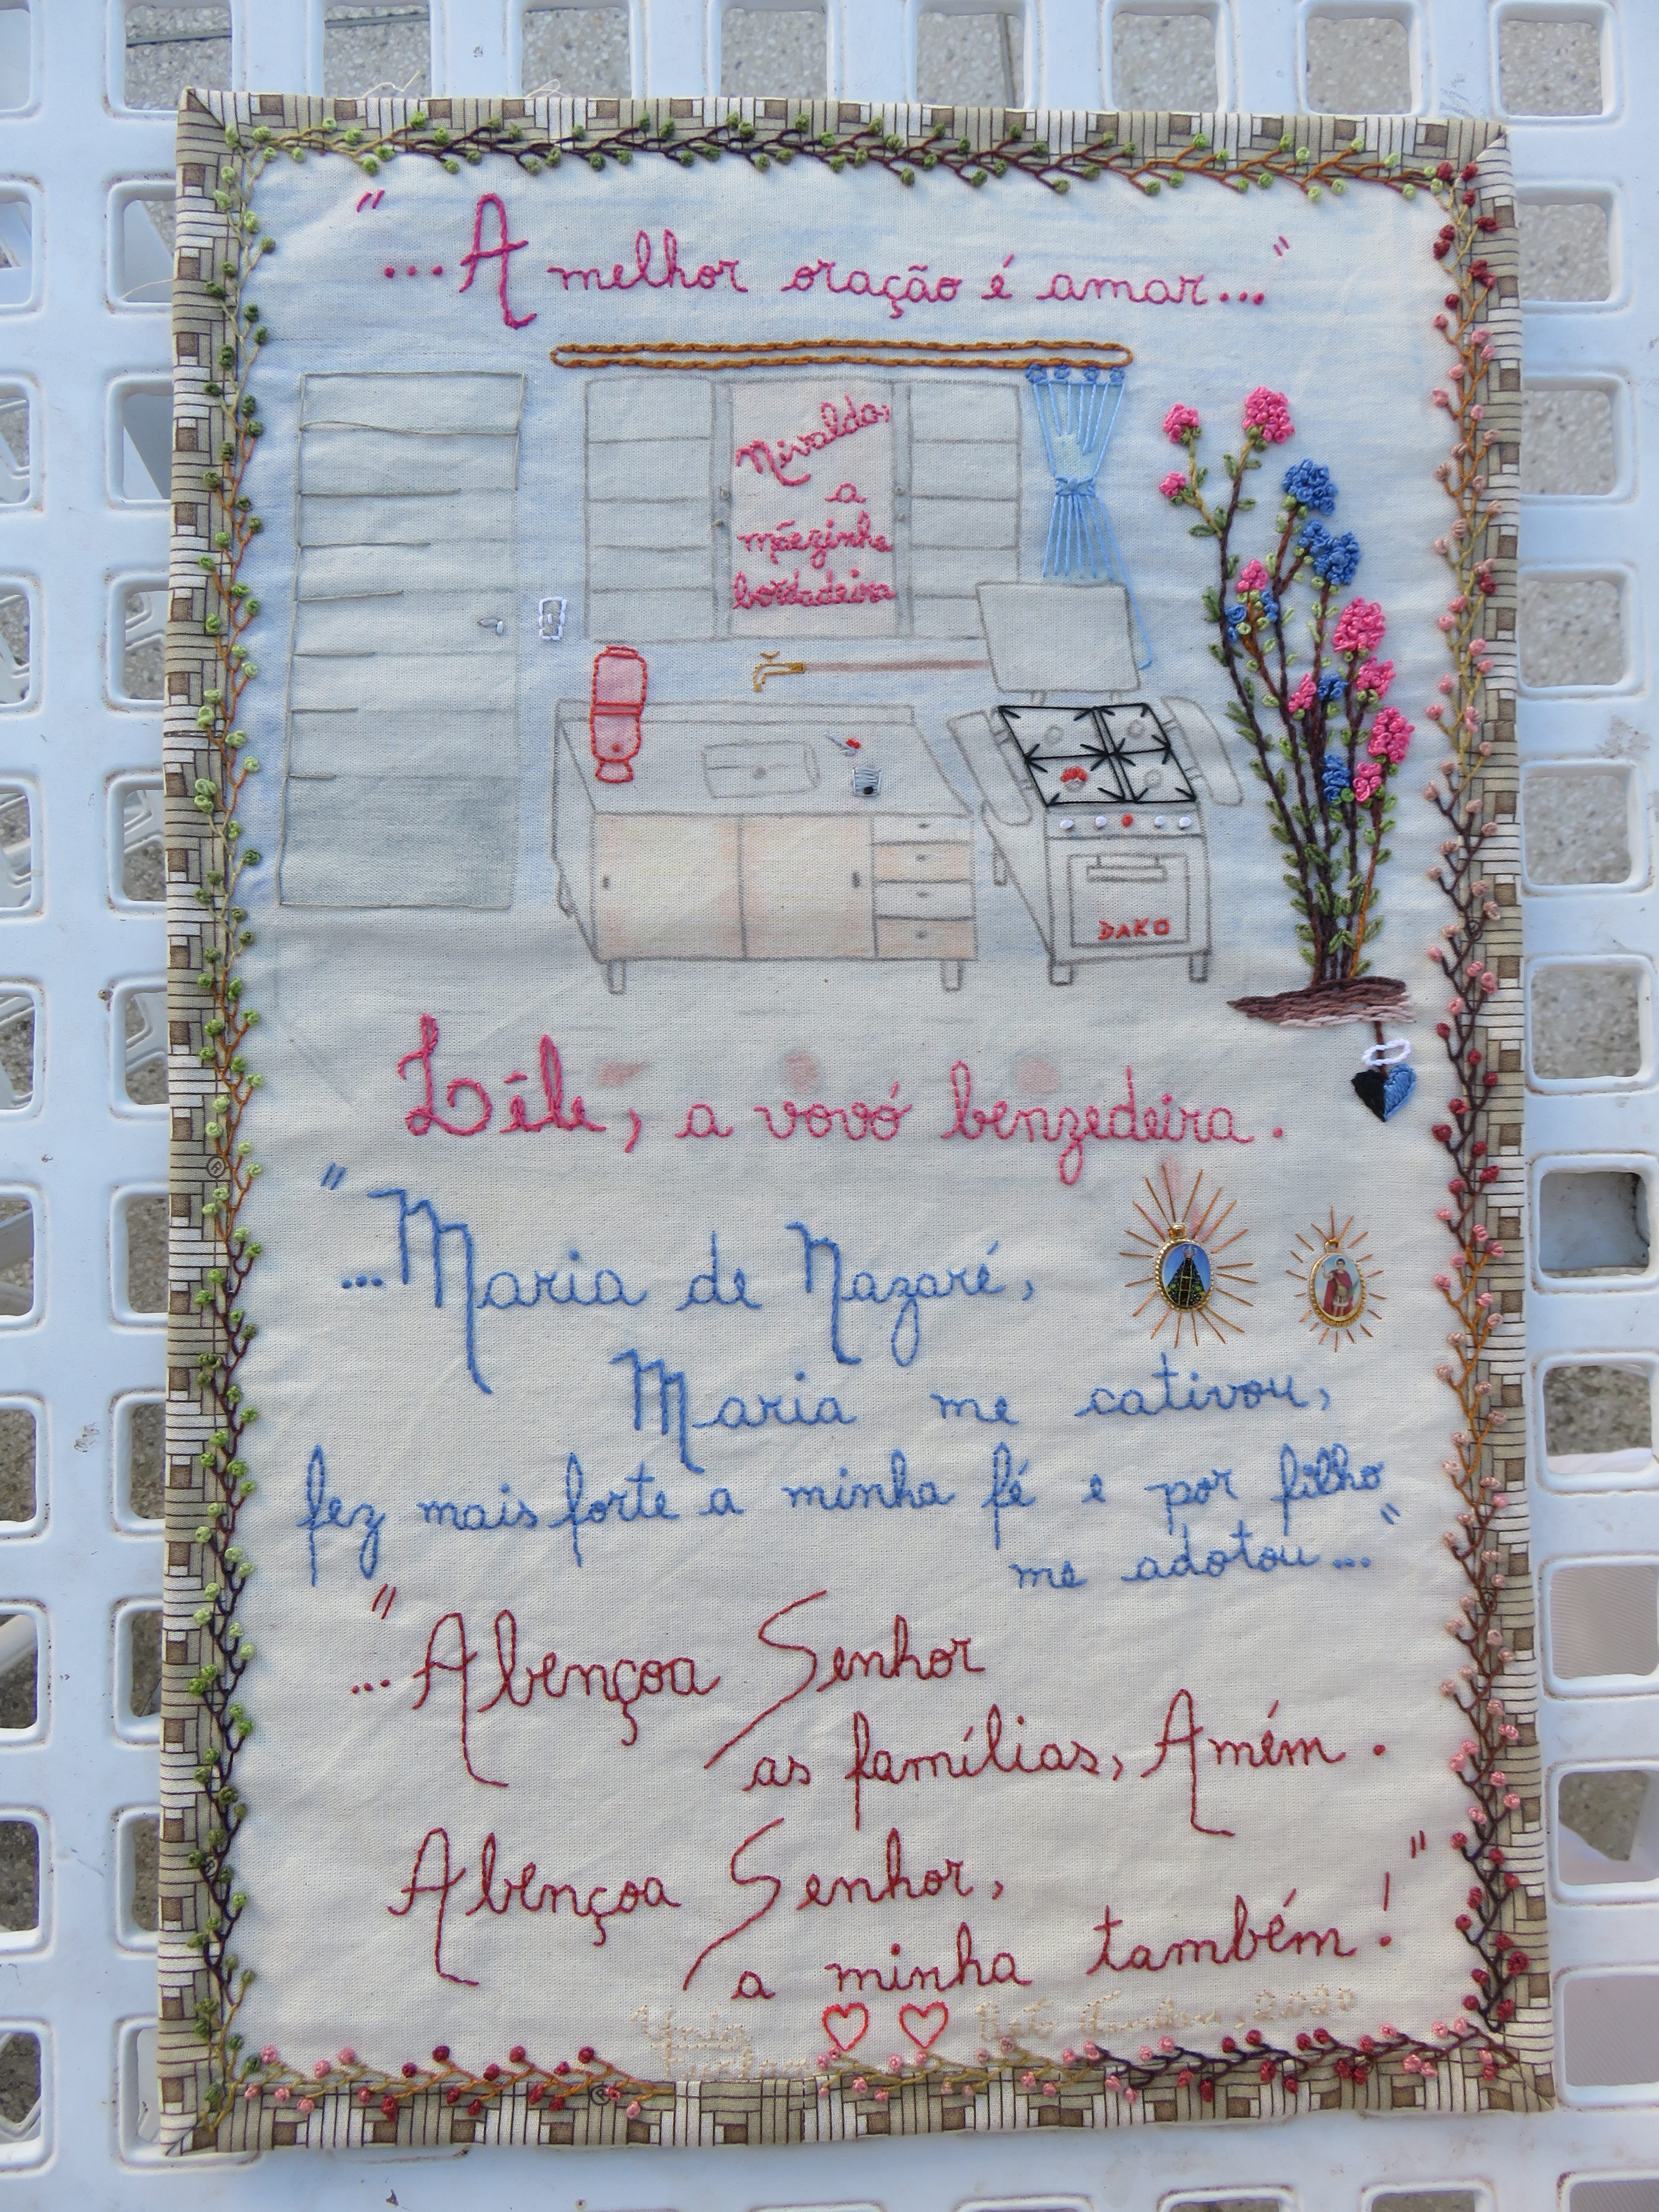 "...A melhor oração é amar..."
Nivalda,
a
mãezinha
bordadeira
DAKO
Lêle, a vovó benzedeira.
"...Maria de Nazaré,
Maria me cativou,
fez mais forte a minha fé e por filho
me adotou..."
"...Abençoa Senhor
as famílias, Amém.
Abençoa Senhor,
a minha também!"
2020